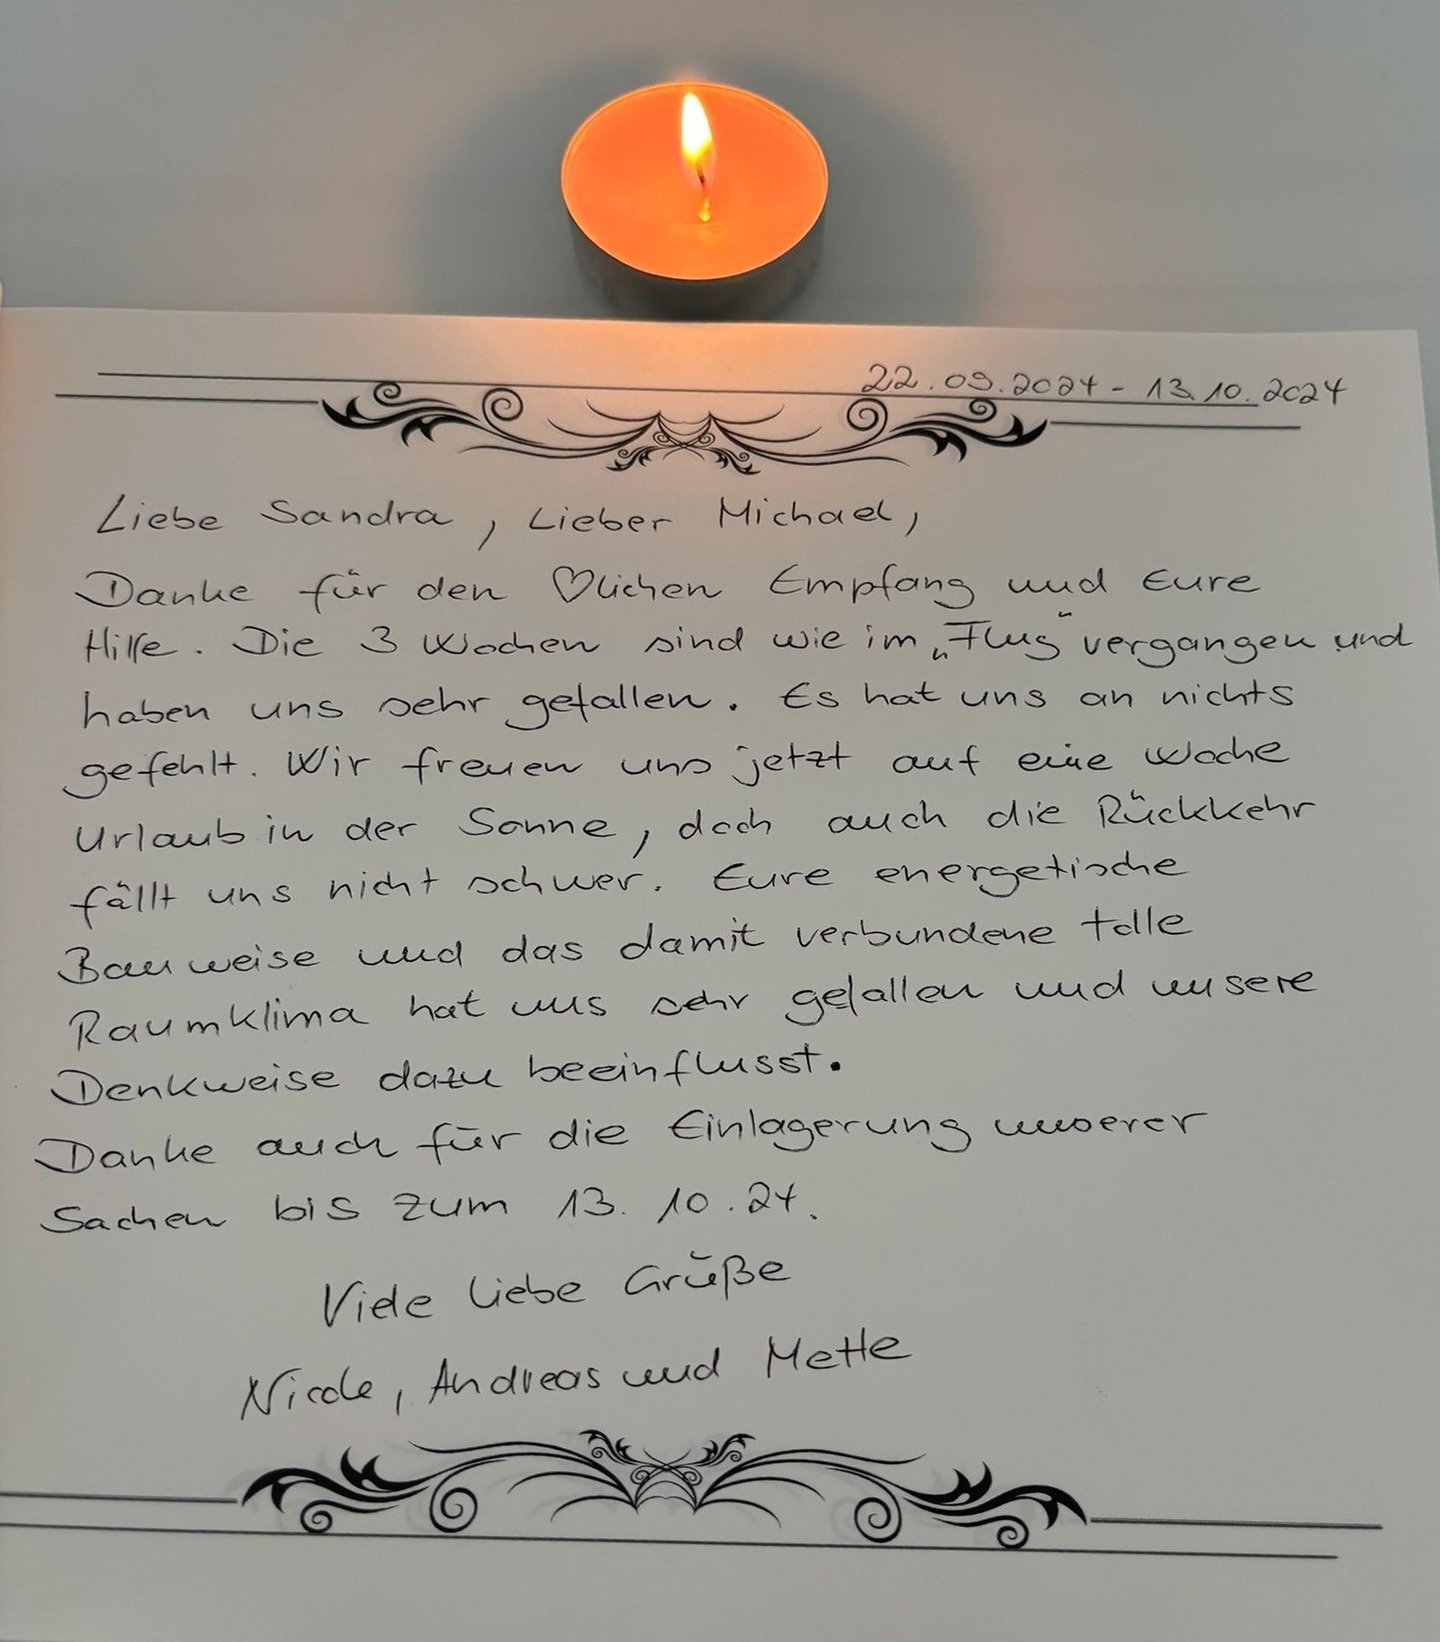 22.09.2024 - 13.10.2024
Liebe Sandra, Lieber Michael,
Danke für den ♡lichen Empfang und Eure
Hilfe. Die 3 Wochen sind wie im „Flug“ vergangen und
haben uns sehr gefallen. Es hat uns an nichts
gefehlt. Wir freuen uns jetzt auf eine Woche
Urlaub in der Sonne, doch auch die Rückkehr
fällt uns nicht schwer. Eure energetische
Bauweise und das damit verbundene tolle
Raumklima hat uns sehr gefallen und unsere
Denkweise dazu beeinflusst.
Danke auch für die Einlagerung unserer
Sachen bis zum 13.10.24.
Viele liebe Grüße
Nicole, Andreas und Mette